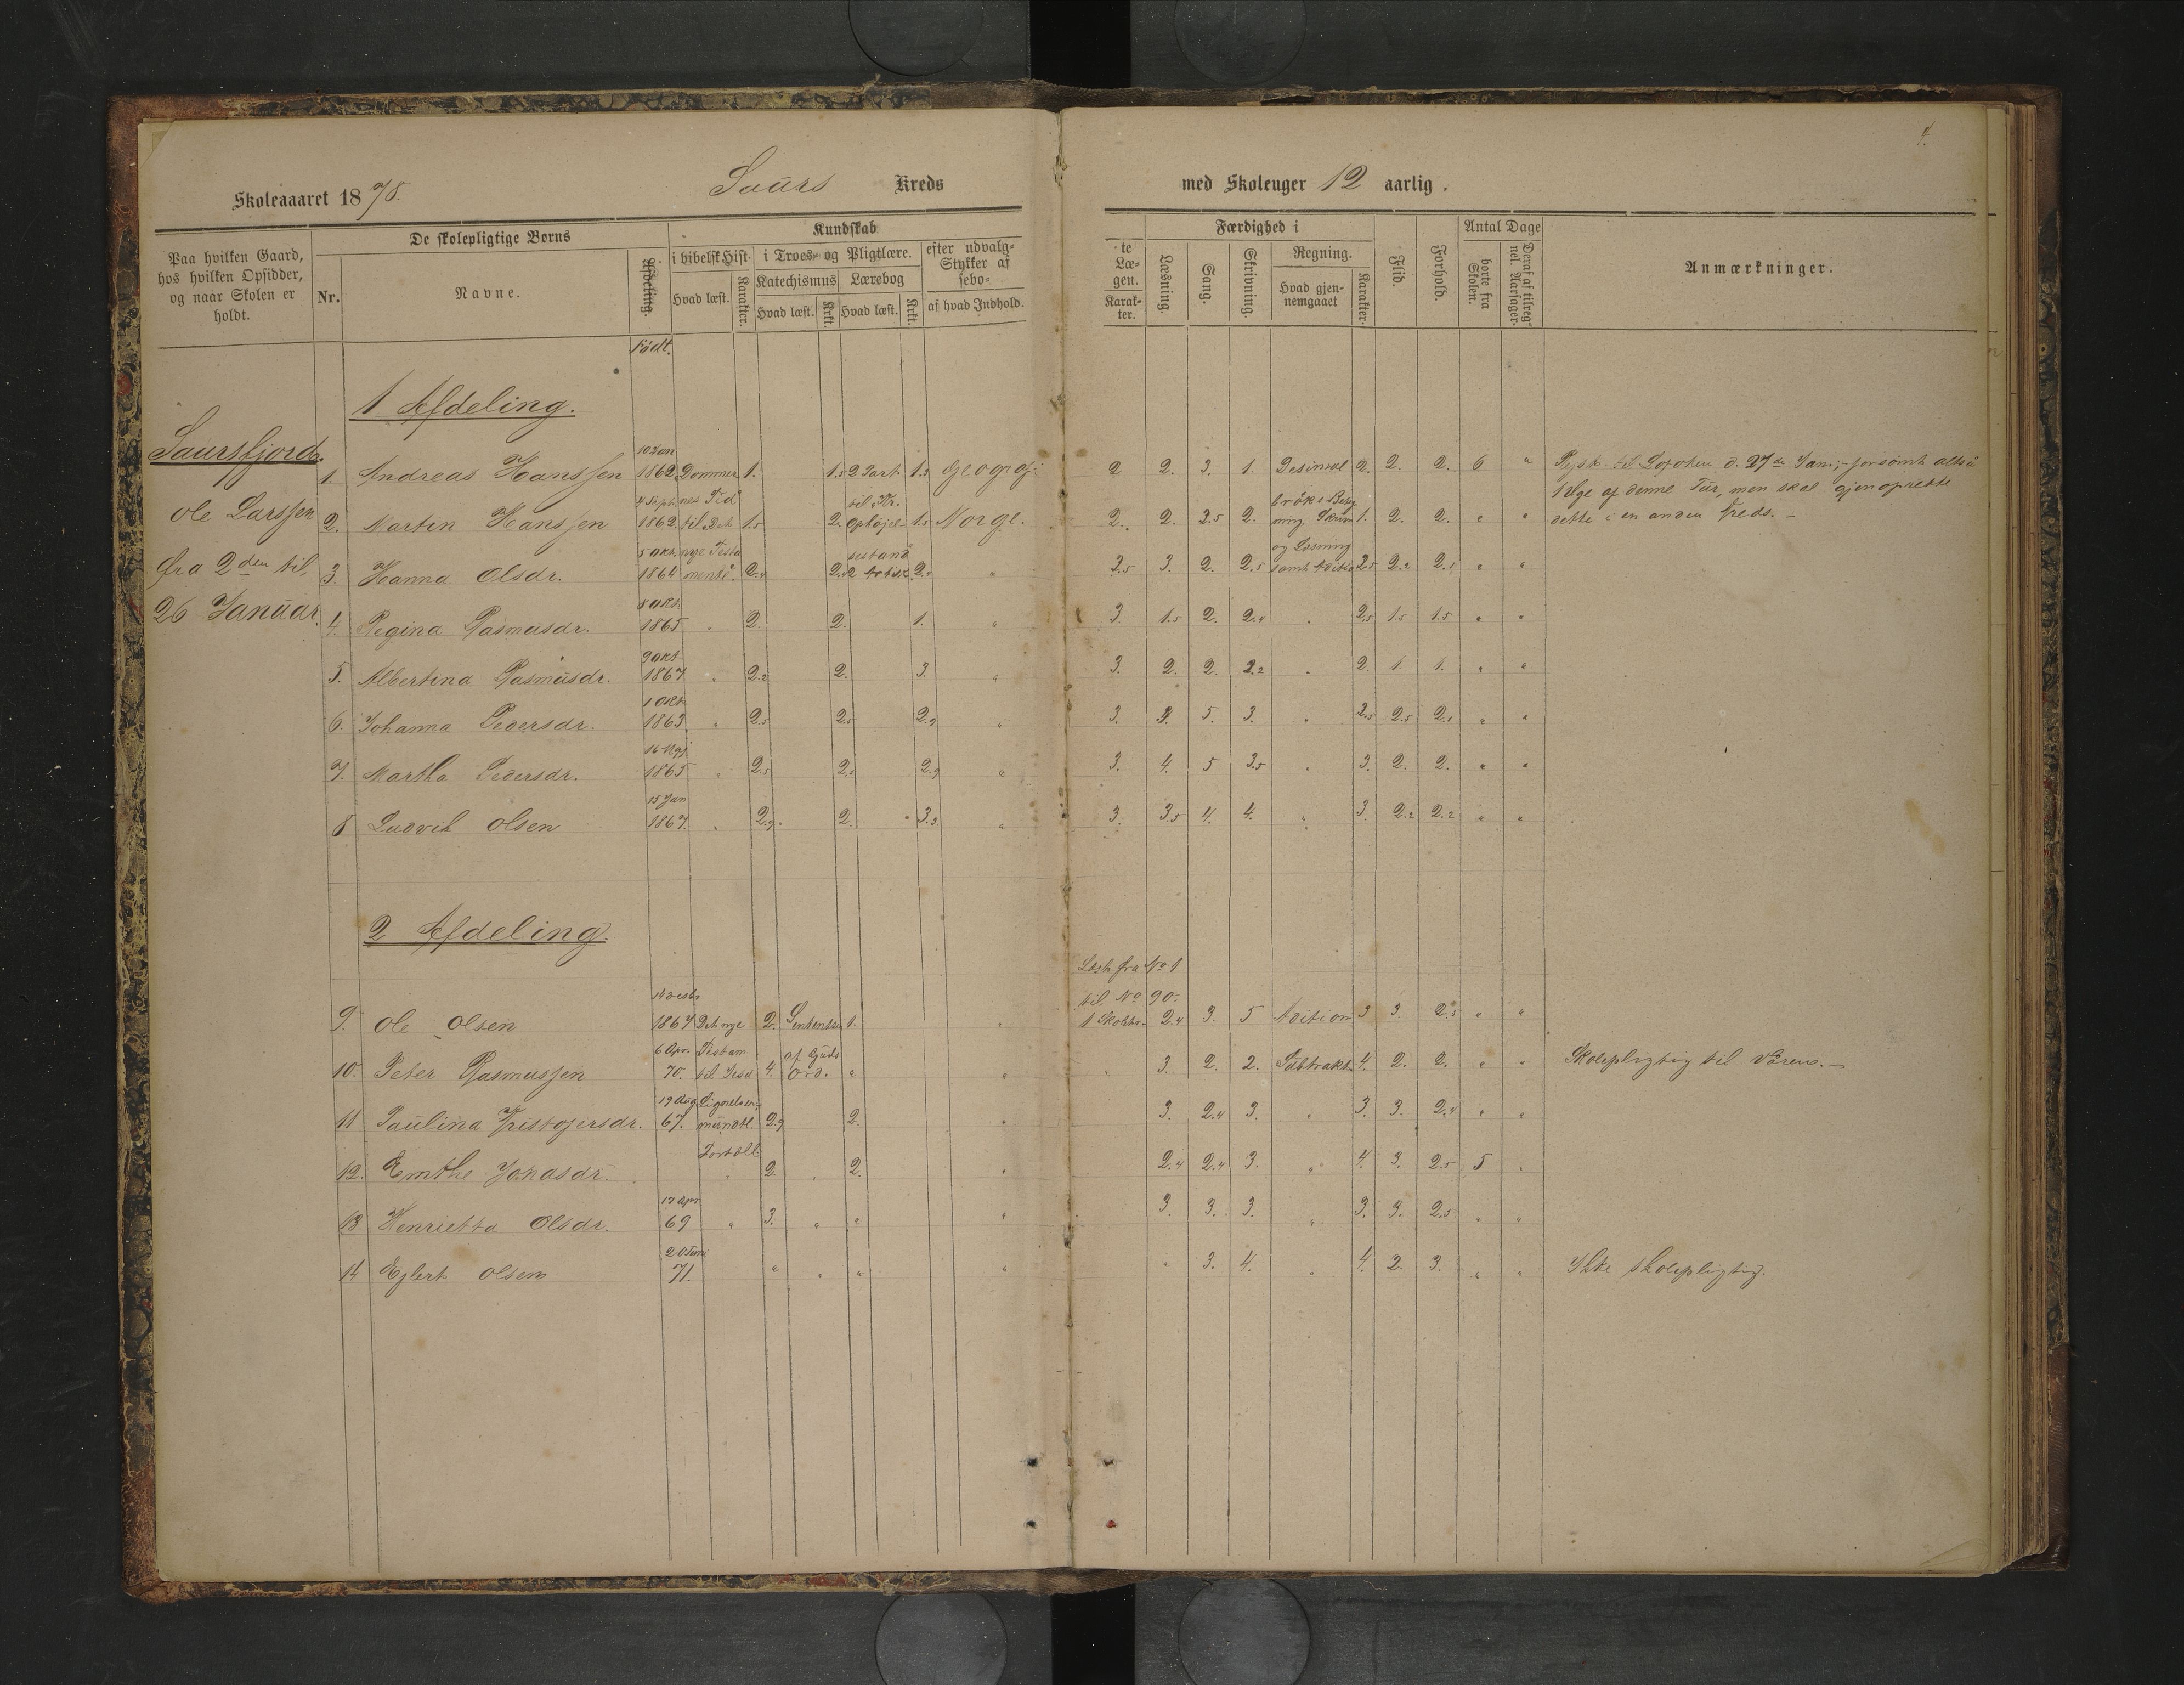 4.
Skoleaaaret 1878. Saurs Kreds med Skoleuger 12 aarlig.
Paa hvilken Gaard, hos hvilken Opsidder, og naar Skolen er holdt.
De skolepligtige Børns
Nr. Navne. Afdeling.
Kundskab
i bibelsk Hist. Hvad læst. Karakter.
i Troes- og Pligtlære.
Katechismus Hvad læst. Krkt.
Lærebog Hvad læst. Krkt.
efter udvalg- Stykker af sebo-
af hvad Indhold.
te Læ- gen. Karak- ter.
Færdighed i
Læsning. Sang. Skrivning.
Regning. Hvad gjen- nemgaaet Karakter.
Flid. Forhold.
Antal Dage
borte fra Skolen. Deraf af tilreg nel. Aarsager.
Anmærkninger.
Født.
1 Afdeling.
Saursfjord.
Ole Larssen
fra 2den til
26 Januar.
1. Andreas Hanssen 10 Jan 1862 Dommer 1. 1.5 2 Part 1.3 Geograf: 2 2. 3. 1. Desimal 2. 2. 2. 6 "
til Lofoten d. 27de Jani,- forsømt altså
1 Uge af denne Tur, men skal gjenoprette
dette i en anden Kreds. -
2. Martin Hanssen 4 Septr. 1862. nes Tid til Det 1.5 2. til Kr. Ophøjel 1.5 Norge. 2. 2. 2.5 2. brøks Beteg ning Skriv 1. 2. 2. " "
3. Hanna Olsdr. 5 Okt. 1864 nye Testa mente. 2.4 2.4 2 Artik. 2.4 " 2.5 3. 2. 2.5 og Læsning samt Adition 2.5 2.2 2.1 " "
4. Regina Rasmusdr. 8 Okt. 1865 " 2. 2. 1. " 3. 1.5 2. 2.4 " 2.5 1.5 1.5 " "
5. Albertina Rasmusdr. 9 Okt 1867 " 2.2 2. 3. " 3. 2. 2. 2.2 " 2. 1. 1. " "
6. Johanna Pedersdr. 1 Okt. 1863. " 2.5 2.5 2.9 " 3. 5. 3. " 2.5 2.5 2.1 " "
7. Martha Pedersdr. 16 Maj 1865 " 2.5 2.5 2.9 " 3. 4. 5 3.5 " 3. 2. 2. " "
8 Ludvik Olsen 15 Jan 1867. " 2.9 2. 3.3. " 3. 3.5 4. 4. " 3. 2.2 2.2 " "
2 Afdeling.
Læst fra No 1
til No 90.
9. Ole Olsen 14 Desbr 1867 Det nye 2. Sententser 1. " 1 Skoletr. 2.4 3. 5 Adition 3 3. 2.5 " "
10. Peter Rasmussen 6 Apr. 70. Testam. til Jesu 4. af Guds Ord. " " " 3. 2. 2. Subtrakt. 4. 2. 2. " " Skolepligtig til Våren. -
11 Paulina Kristofersdr. 19 Aug 67. Lignelser mündtl. 2.9 2. " 3. 2.4 3. " 3. 3. 2.4 " "
12. Emthe Jonasdr. Fortæll " 2. " 2. " 2.4 2.4 3. " 4. 3. 2.5 5 "
13. Henrietta Olsdr. 17 Apr. 69 " 3. " " " 3. 3. 3. " 3. 3. 2.5 " "
14 Ejlert Olsen 20 71. " " " " " 3. 4. " 4. 2. 3. " " Ikke skolepligtig.